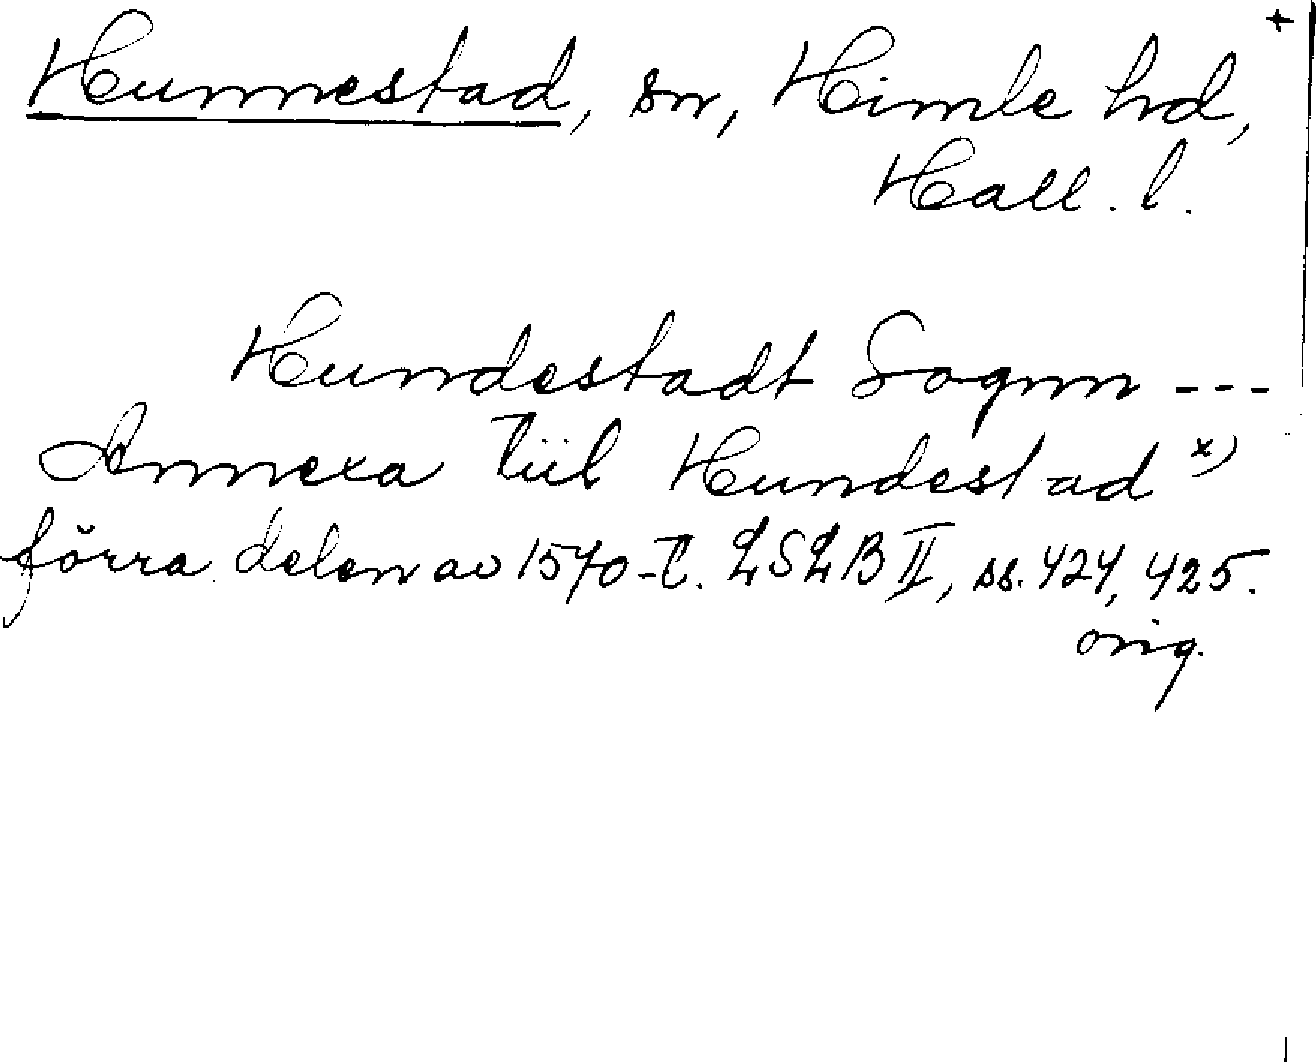 +
Hunnestad, sn, Himle hd,
Hall. l.
Hundestadt Sognn ---
Annexa tiil Hundestad x)
förra delen av 1570-t. LSLB II, ss. 424, 425.
orig.